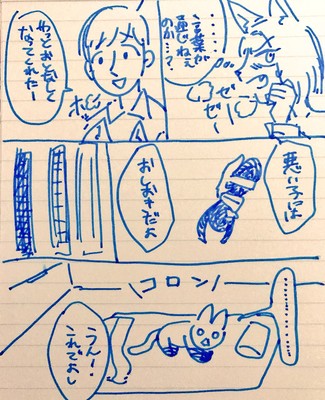 ・・・・・・
言葉が
通じねえ
のか…？
ゼー
ゼー
やっとおとなしく
なってくれたー
ホッ
悪い子には
おしおきだよ
コロン
…………
うん！
これでよし